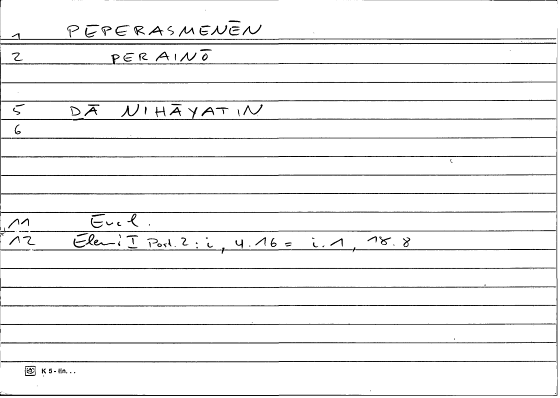 1 PEPERASMENĒN
2 PERAINŌ
5 DĀ NIHĀYATIN
6
11 Eucl.
12 Elem I Post. 2 : i, 4.16 = i.1, 18.8
K 5 - lin...